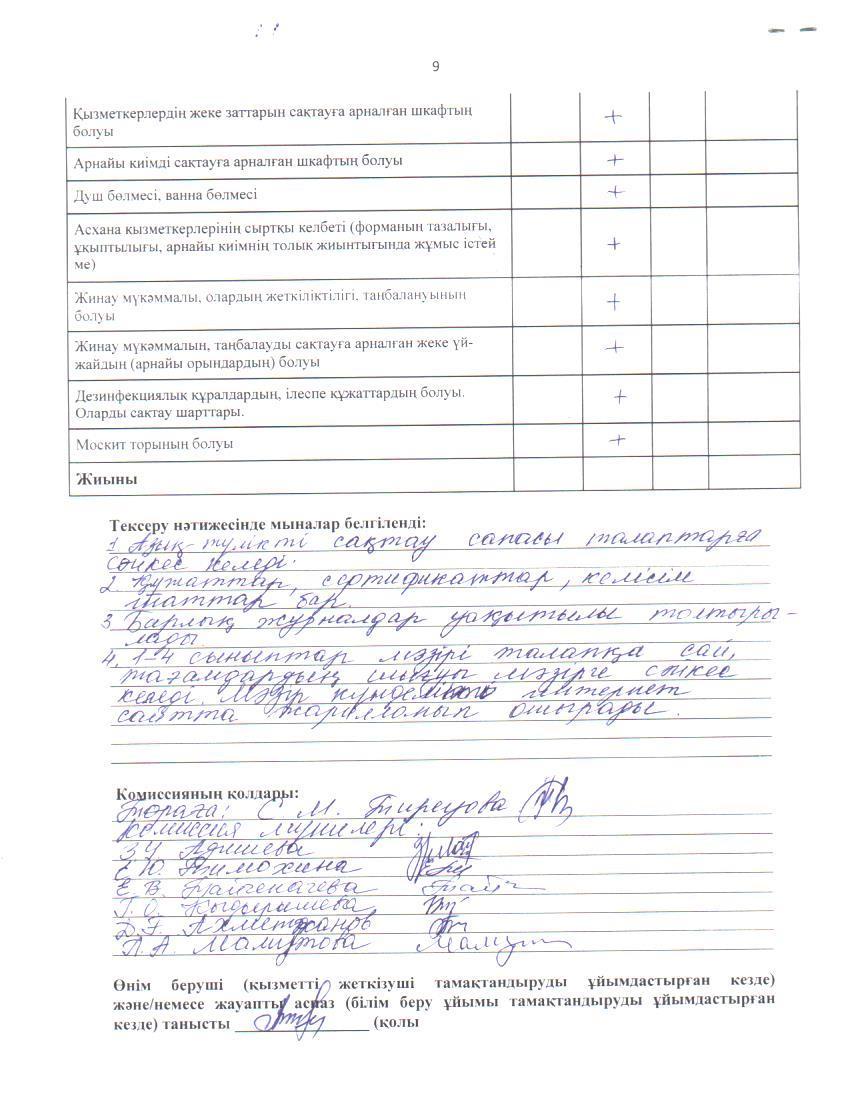 9
Қызметкерлердің жеке заттарын сақтауға арналған шкафтың
болуы
+
Арнайы киімді сақтауға арналған шкафтың болуы
+
Душ бөлмесі, ванна бөлмесі
+
Асхана қызметкерлерінің сыртқы келбеті (форманың тазалығы,
ұқыптылығы, арнайы киімнің толық жиынтығында жұмыс істей
ме)
+
Жинау мүкәммалы, олардың жеткіліктілігі, таңбалануының
болуы
+
Жинау мүкәммалын, таңбалауды сақтауға арналған жеке үй-
жайдың (арнайы орындардың) болуы
+
Дезинфекциялық құралдардың, ілеспе құжаттардың болуы.
Оларды сақтау шарттары.
+
Москит торының болуы
+
Жиыны
Тексеру нәтижесінде мыналар белгіленді:
1. Азық-түлікті сақтау сапасы талаптарға
сәйкес келеді.
2. Құжаттар, сертификаттар, келісім
шаттар бар.
3. Барлық журналдар уақытылы толтыры-
лады
4. 1-4 сыныптар мәзірі талапқа сай,
тағамдардың шығуы мәзірге сәйкес
келеді. Мәзір күнделікті интернет
сайтта жарияланып отырады.
Комиссияның қолдары:
Төраға: С. М.
Комиссия мүшелері:
З У Адишева
Е. Ю. Тимохина
Е. В.
Г. О. Кыдырышева
Д. Ахметжанов
Л. А. Мамутова
Өнім беруші (қызметті жеткізуші тамақтандыруды ұйымдастырған кезде)
және/немесе жауапты аспаз (білім беру ұйымы тамақтандыруды ұйымдастырған
кезде) танысты ________________ (қолы